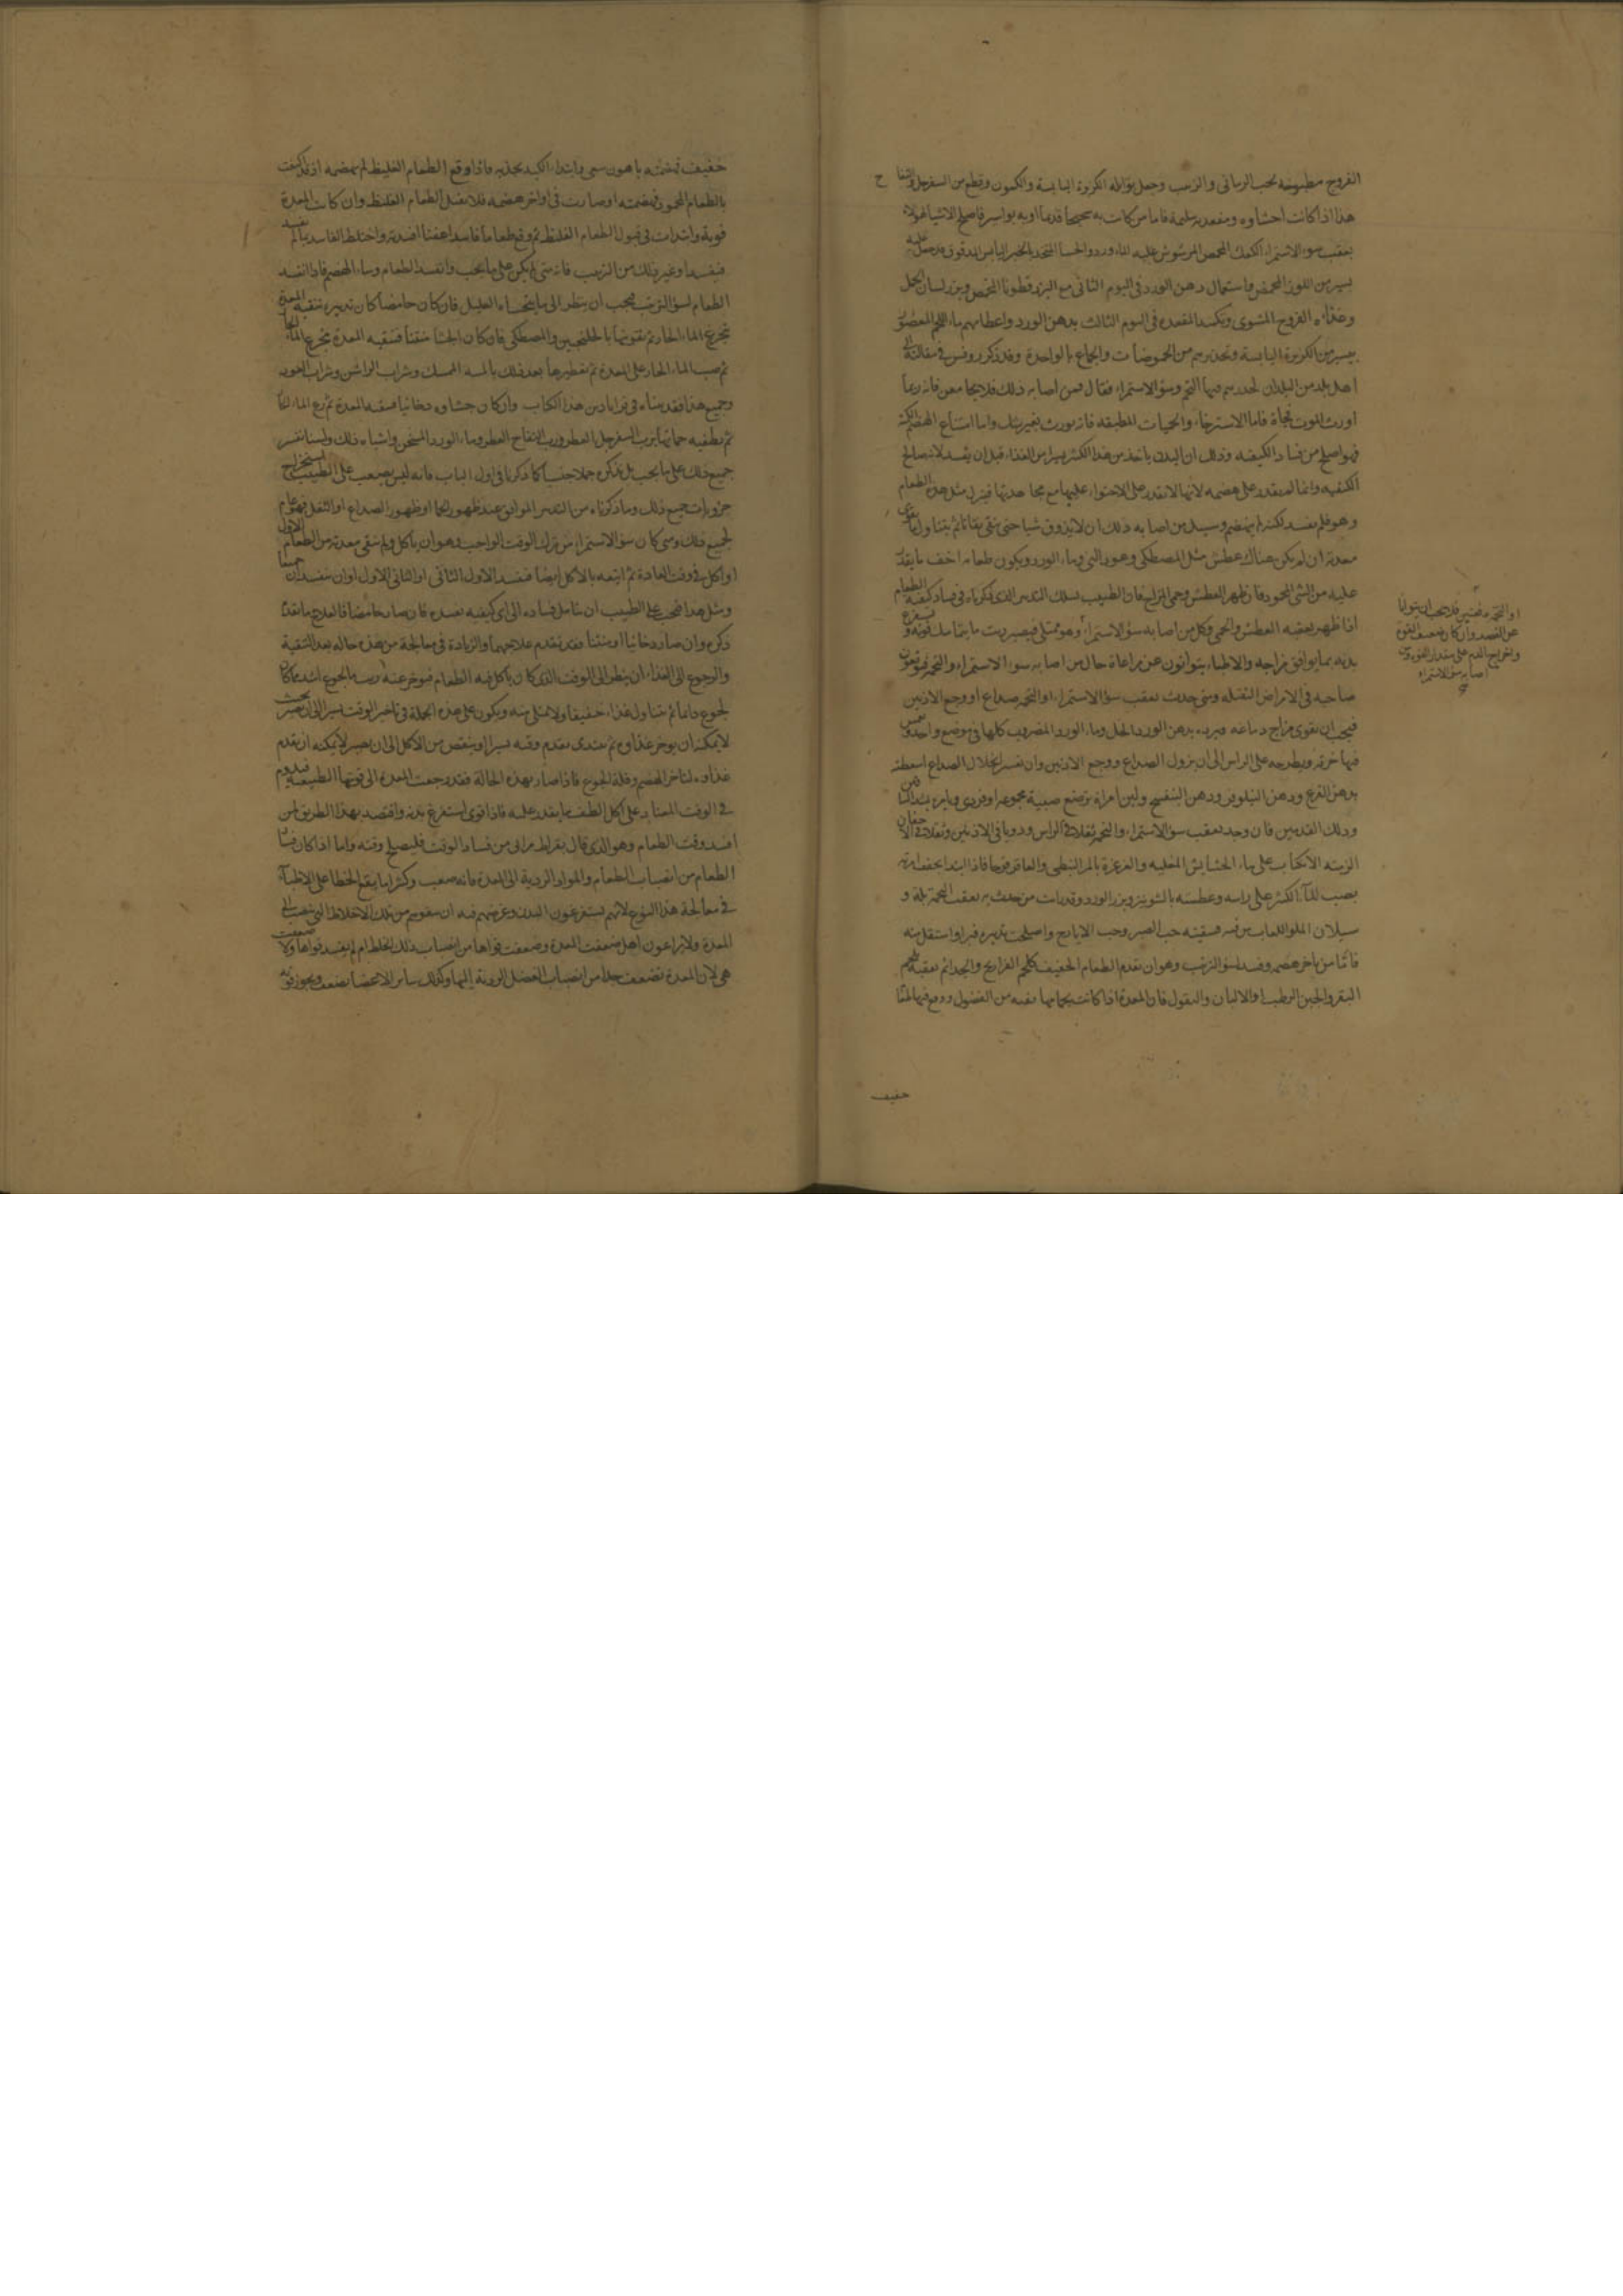 الفروج مطبوخة بحب الرمانى والزبيب وجعل توابله الكزبرة اليابسة والكمون وقطع من السفرجل
هذا اذا كانت احشاوه ومقعدته سليمة فاما من كانت به قديما او به بواسير فاصلح الاشيا لهولاء
بعقب سوء الاستمراء الكعك المحمص المرشوش عليه الماء ورد والحسا المتخذ بالخبز اليابس المدقوق
يسير من اللوز المحمص واستعمال دهن الورد فى اليوم الثانى مع البزرقطونا المحمص وبزر لسان الحمل
وغذاه الفروج المشوى وتكميد المقعدة فى اليوم الثالث بدهن الورد واعطاهم ماء اللحم المعصور
بيسير من الكزبرة اليابسة وتحذيرهم من الحموضات والجماع بالواحدة وقد ذكر روفس فى مقالته الى
اهل بلد من البلدان يحذرهم فيها التخم وسوء الاستمراء فقال فمن اصابه ذلك فلا يجامعن فانه ربما
اورث الموت فجأة فاما الاسترخاء والحميات المطبقه فانه يورث بغير شك واما امتناع الهضم
فهو اصلح من فساد الكيفيه وذلك ان البدن ياخذ من هذا الكثير يسيرا من الغذاء قبل ان يفسد لانه صالح
الكيفيه وانما لم يقدر على هضمه لانها لا تقدر على الاحتواء عليها مع فينزل مثل هذا الطعام
وهو فلم يفسد لكنه لم ينهضم وسبيل من اصابه ذلك ان لا يذوق شيا حتى ينقى نقا تاما ثم يتناول ما يقوى
معدته ان لم يكن هناك عطش مثل المصطكى وعود النى وماء الورد ويكون طعامه اخف ما يقدر
عليه من الشى المحمود فان ظهر العطش وحمى المزاج فان الطبيب يسلك التدبير الذى ذكرناه فى فساد كيفية الطعام
اذا ظهر بعقبه العطش والحمى وكل من اصابه سوء الاستمراء وهو ممتلى فيصير ريث ما يتماسك قوته ويستفرغ
بدنه بما يوافق مزاجه والاطباء يتوانون عن مراعاة حال من اصابه سوء الاستمراء والتخمه فيوقعون
صاحبه فى الامراض الثقيله ومتى حدث بعقب سوء الاستمراء او التخمه صداع او وجع الاذنين
فيجب ان يقوى مزاج دماغه ويبرده بدهن الورد والخل وماء الورد المضروب كلها فى موضع واحد ويغمس
فيها خرقة ويطرحه على الراس الى ان يزول الصداع ووجع الاذنين وان تعسر انحلال الصداع اسعطه
بدهن القرع ودهن النيلوفر ودهن البنفسج ولبن امراة ترضع صبية مجموعه او فردى
ودلك القدمين فان وجد بعقب سوء الاستمراء والتخمه ثقلا فى الراس ودويا فى الاذنين وثقلا فى الاجفان
الزمته الانكباب على ماء الحشايش المغليه والغرغرة بالمر النبطى والعاقرقرحا
يصب الماء الكثير على راسه وعطسته بالشونيز وبزر الورد وقد رات من حدث به بعقب التخمة بله و
سيلان اللعاب من فمه فسقيته حب الصبر وحب الايارج واصلحت تدبيره فبراوا استقل منه
فاما من تاخر هضمه وفسد لسوء الترتيب وهو ان يقدم الطعام الخفيف كلحم الفراريج والجدا ثم يعقبه بلحم
البقر والجبن الرطب او الالبان والبقول فان المعدة اذا كانت بحالها نقيه من الفضول ووقع فيها لحما
خفيف
او التخمه فلا يجب ان يتوانا
عن الفصد وان كان ضعيف القوة
واخراج الدم على مقدار القوة ومن
اصابه سوء الاستمراء
خفيف قبضته باهون سعى وابتداء الكبد بجذبه فاذا وقع الطعام الغليظ لم يهضمه
بالطعام المحمود فهضمته او صارت فى اواخر هضمه فلا تقبل الطعام الغليظ وان كانت المعدة
قوية وابتدات فى قبول الطعام الغليظ ثم وقع طعاما فاسدا عفنا افسدته واختلط الفاسد
فيفسد او غير ذلك من الترتيب فانه متى لم يكن على ما يجب وانفسد الطعام وساء الهضم فاذا انفسد
الطعام لسوء الترتيب فيجب ان ينظر الى ما يتجشاه العليل فان كان حامضا كان تدبيره تنقيه المعدة
بجرع الماء الحار ثم تقويتها بالجلنجبين والمصطكى فان كان الجشا منتنا فتنقيه المعدة بجرع الماء الحار
ثم صب الماء الحار على المعدة ثم تعطيرها بعد ذلك بالمسك وشراب الراسن وشراب
وجميع هذا فقد بيناه فى قرابادين هذا الكتاب وان كان جشاوه دخانيا فتنقيه المعدة ثم جرع الماء
ثم تطفيه حماتها برب السفرجل العطر ورب التفاح العطر وماء الورد المسخن واشباه ذلك ولسنا نفسر
جميع ذلك على ما يجب بل نذكره جملا حسبما كما ذكرنا فى اول الباب فانه ليس يصعب على الطبيب استخراج
جزويات جميع ذلك وما ذكرناه من التدبير الموافق عند ظهور الحما او ظهور الصداع او الثقل فهو عام
لجميع ذلك ومتى كان سوء الاستمراء من ترك الوقت الواجب وهو ان ياكل ولم تنقى معدته من الطعام الاول
او اكل فى وقت العادة ثم اتبعه بالاكل ايضا فيفسد الاول الثانى او الثانى الاول او ان يفسدان جميعا
ومثل هذا فيجب على الطبيب ان يتامل فساده الى اى كيفيه فان صار حامضا فالعلاج ما تقدم
ذكره وان صار دخانيا او منتنا فقد تقدم علاجهما والزيادة فى معالجة من هذه حاله بعد التنقية
والرجوع الى الغذاء ان ينظر الى الوقت الذى كان ياكل فيه الطعام فيوخر عنه ريث ما يجوع اشد ما كان
يجوع دايما ثم يتناول غذاء خفيفا ولا يمتلى منه ويكون على هذه الجملة فى تاخير الوقت يسيرا الى ان يصير بحيث
لا يمكنه ان يوخر غذاوه ثم يبتدى بتقدم وقته يسيرا وينقص من الاكل الى ان يصير لا يمكنه ان يقدم
غذاوه لتاخر الهضم وقلة الجوع فاذا صار بهذه الحالة فقد رجعت المعدة الى قوتها الطبيعية فيدوم
فى الوقت المعتاد على اكل الطف ما يقدر عليه فاذا قوى استفرغ بدنه واقتصد بهذا الطريق لمن
افسد وقت الطعام وهو الذى قال بقراط من اتى من فساد الوقت فليصلح وقته واما اذا كان فساد
الطعام من انصباب الطعام والمواد الردية الى المعدة فانه صعب وكثيرا ما يقع الخطا على الاطباء
فى معالجة هذا النوع لانهم يستفرغون البدن وغرضهم فيه ان من تلك الاخلاط التى تنصب الى
المعدة ولا يراعون اهل ضعفت المعدة وضعفت قواها من انصباب ذلك الخلط ام لم يفسد قواها ولا ضعفت
هى لان المعدة تضعف جدا من انصباب الفضل الردية اليها وكذلك ساير الاعضا تضعف